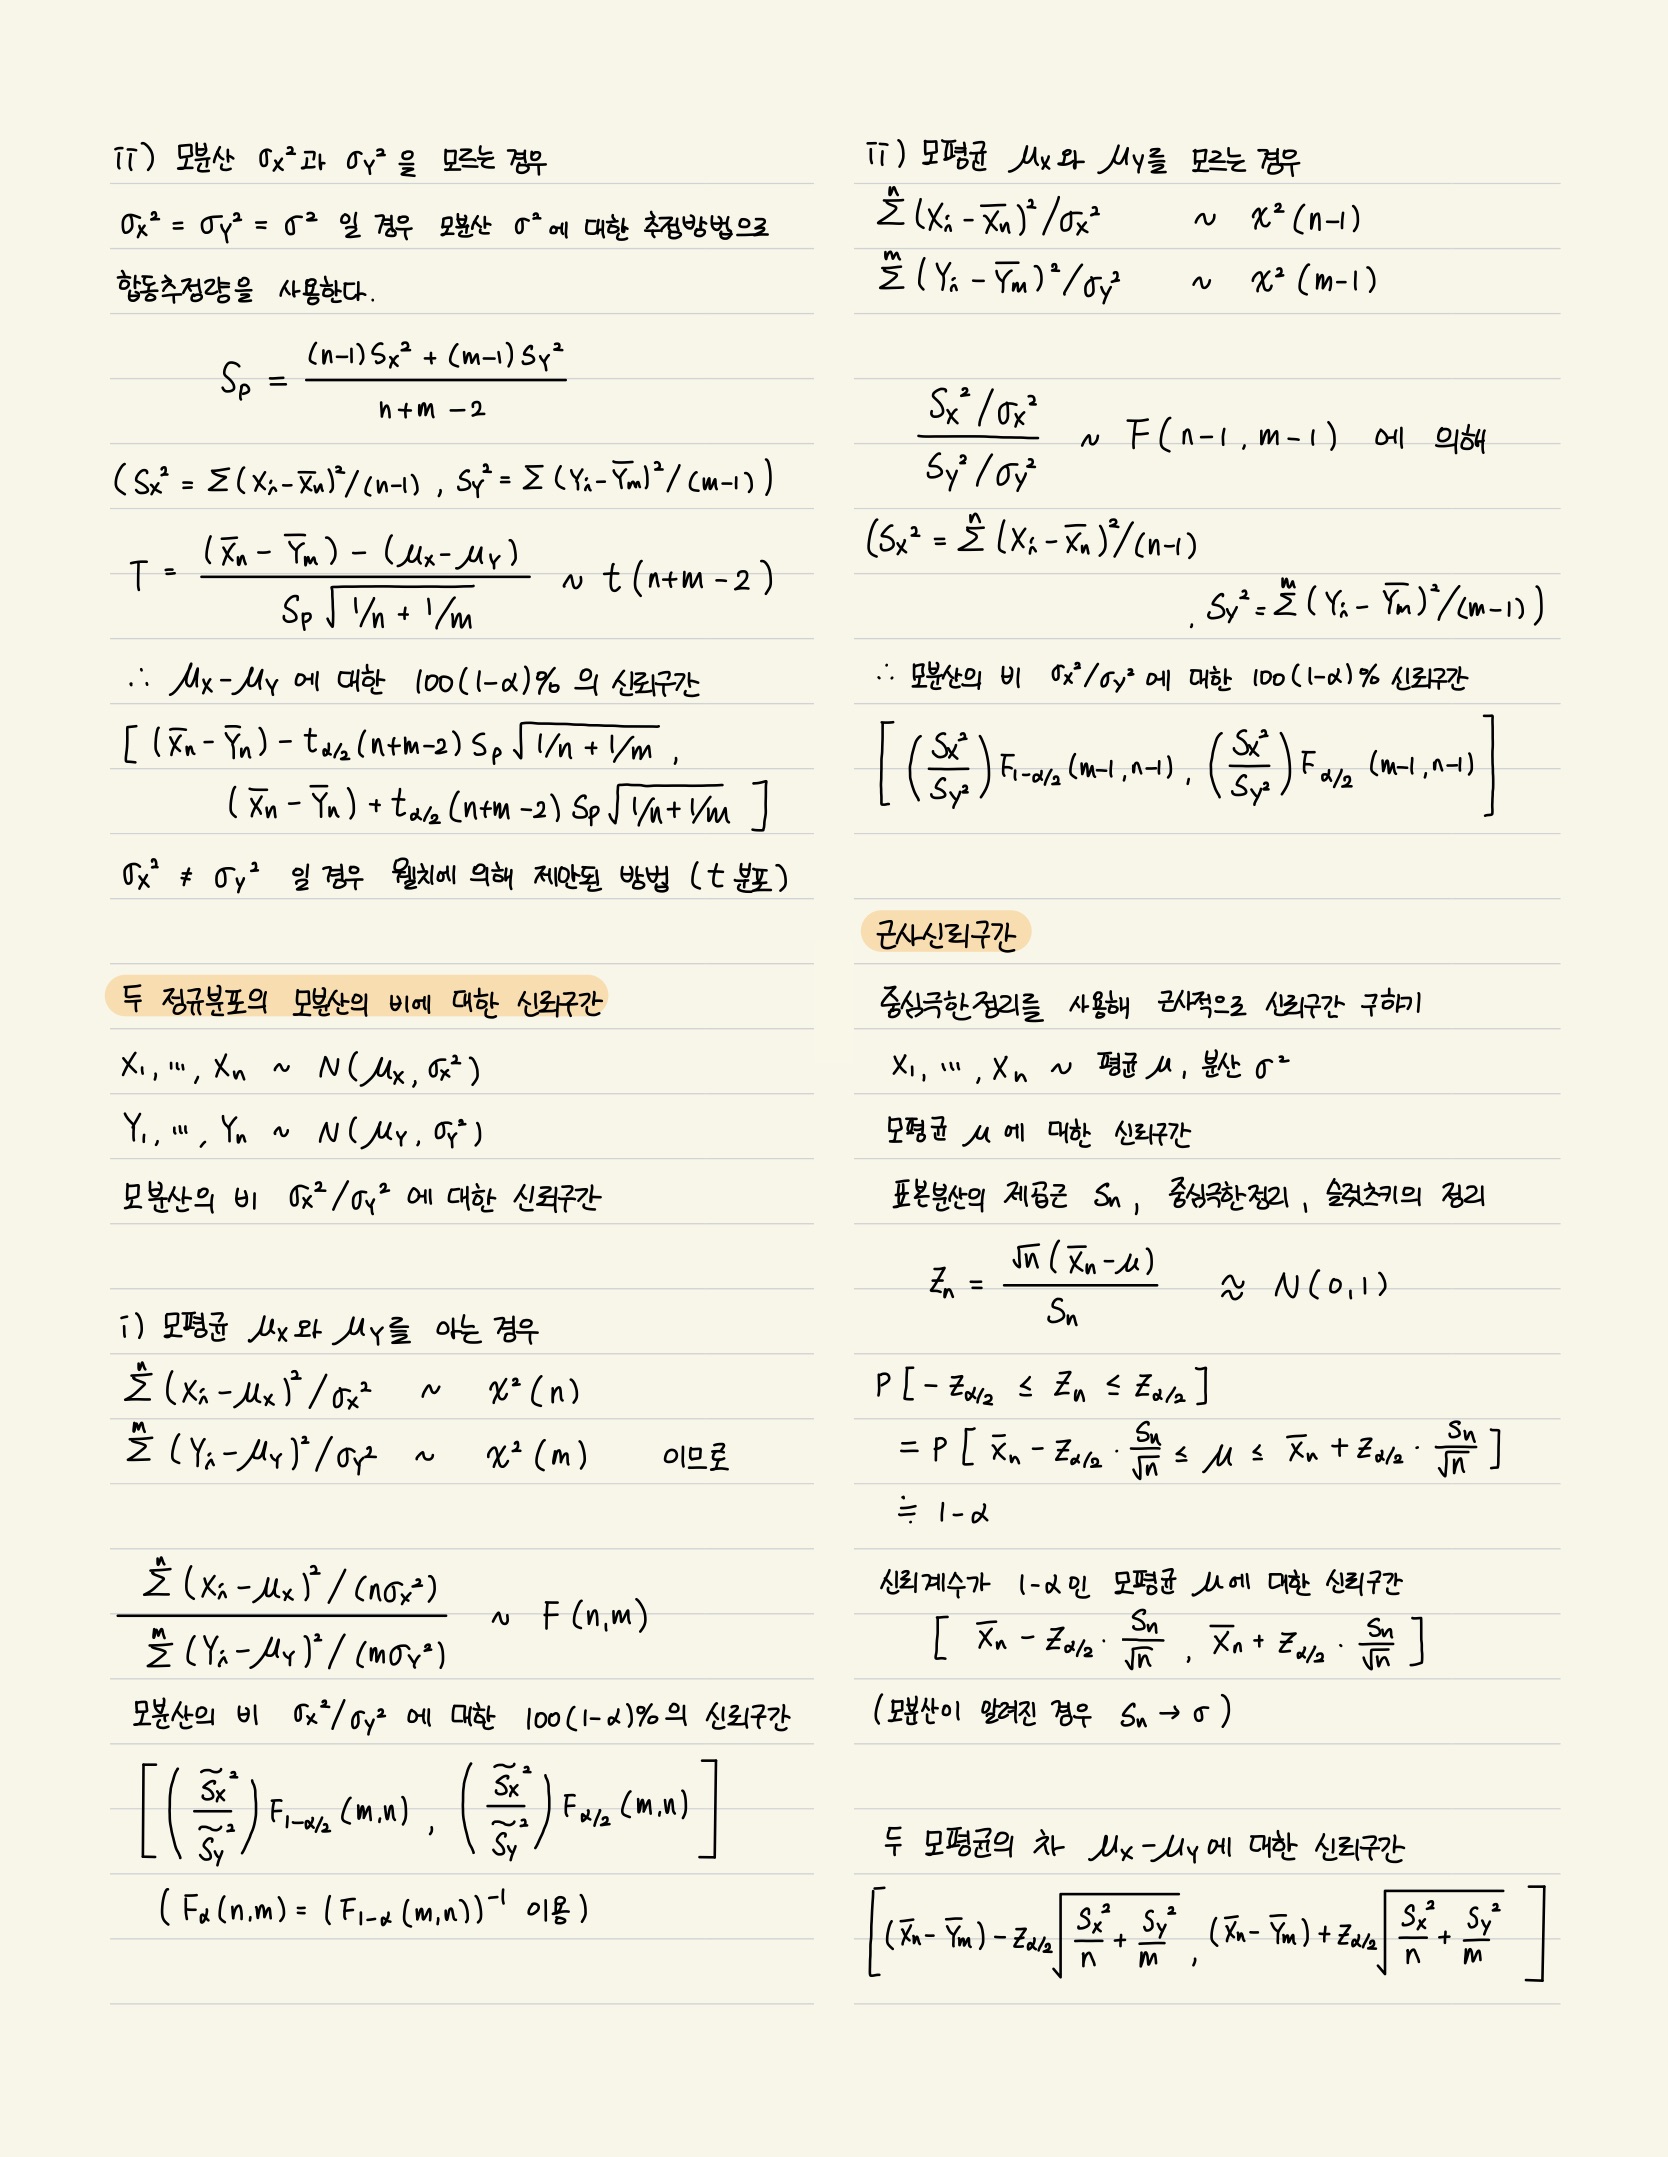 ii) 모분산 σx²과 σY²을 모르는 경우
σx² = σY² = σ² 일 경우 모분산 σ²에 대한 추정방법으로
합동추정량을 사용한다.
Sp = (n-1)Sx² + (m-1)SY² / n+m-2
(Sx² = Σ(Xi-X̄n)²/(n-1) , SY² = Σ(Yi-Ȳm)²/(m-1))
T = (X̄n - Ȳm) - (μx-μY) / Sp√(1/n + 1/m) ~ t(n+m-2)
∴ μX-μY 에 대한 100(1-α)% 의 신뢰구간
[ (X̄n - Ȳn) - tα/2(n+m-2) Sp √(1/n + 1/m) ,
(X̄n - Ȳn) + tα/2(n+m-2) Sp √(1/n + 1/m) ]
σx² ≠ σY² 일 경우 웰치에 의해 제안된 방법 (t 분포)
두 정규분포의 모분산의 비에 대한 신뢰구간
X1, ⋯, Xn ~ N(μX, σx²)
Y1, ⋯, Yn ~ N(μY, σY²)
모분산의 비 σx²/σY² 에 대한 신뢰구간
i) 모평균 μX와 μY를 아는 경우
Σⁿ(Xi-μX)²/σx² ~ χ²(n)
Σᵐ(Yi-μY)²/σY² ~ χ²(m) 이므로
Σⁿ(Xi-μX)²/(nσx²) / Σᵐ(Yi-μY)²/(mσY²) ~ F(n,m)
모분산의 비 σx²/σY² 에 대한 100(1-α)%의 신뢰구간
[ (S̃x²/S̃Y²) F1-α/2(m,n) , (S̃x²/S̃Y²) Fα/2(m,n) ]
(Fα(n,m) = (F1-α(m,n))⁻¹ 이용)
ii) 모평균 μX와 μY를 모르는 경우
Σⁿ(Xi-X̄n)²/σx² ~ χ²(n-1)
Σᵐ(Yi-Ȳm)²/σY² ~ χ²(m-1)
Sx²/σx² / SY²/σY² ~ F(n-1, m-1) 에 의해
(Sx² = Σⁿ(Xi-X̄n)²/(n-1)
, SY² = Σᵐ(Yi-Ȳm)²/(m-1))
∴ 모분산의 비 σx²/σY² 에 대한 100(1-α)% 신뢰구간
[ (Sx²/SY²) F1-α/2(m-1,n-1) , (Sx²/SY²) Fα/2(m-1,n-1) ]
근사신뢰구간
중심극한정리를 사용해 근사적으로 신뢰구간 구하기
X1, ⋯, Xn ~ 평균 μ, 분산 σ²
모평균 μ에 대한 신뢰구간
표본분산의 제곱근 Sn, 중심극한정리, 슬럿츠키의 정리
Zn = √n(X̄n-μ) / Sn ≈ N(0,1)
P[-Zα/2 ≤ Zn ≤ Zα/2]
= P[ X̄n - Zα/2 · Sn/√n ≤ μ ≤ X̄n + Zα/2 · Sn/√n ]
≒ 1-α
신뢰계수가 1-α인 모평균 μ에 대한 신뢰구간
[ X̄n - Zα/2 · Sn/√n , X̄n + Zα/2 · Sn/√n ]
(모분산이 알려진 경우 Sn → σ)
두 모평균의 차 μX-μY에 대한 신뢰구간
[ (X̄n-Ȳm) - Zα/2 √(Sx²/n + SY²/m) , (X̄n-Ȳm) + Zα/2 √(Sx²/n + SY²/m) ]